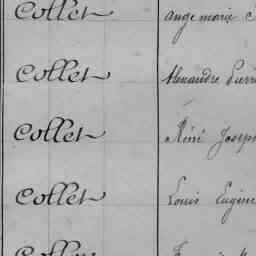 Collet Ange marie
Collet Alexandre Pierre
Collet Réné Joseph
Collet Louis Eugène
Collet